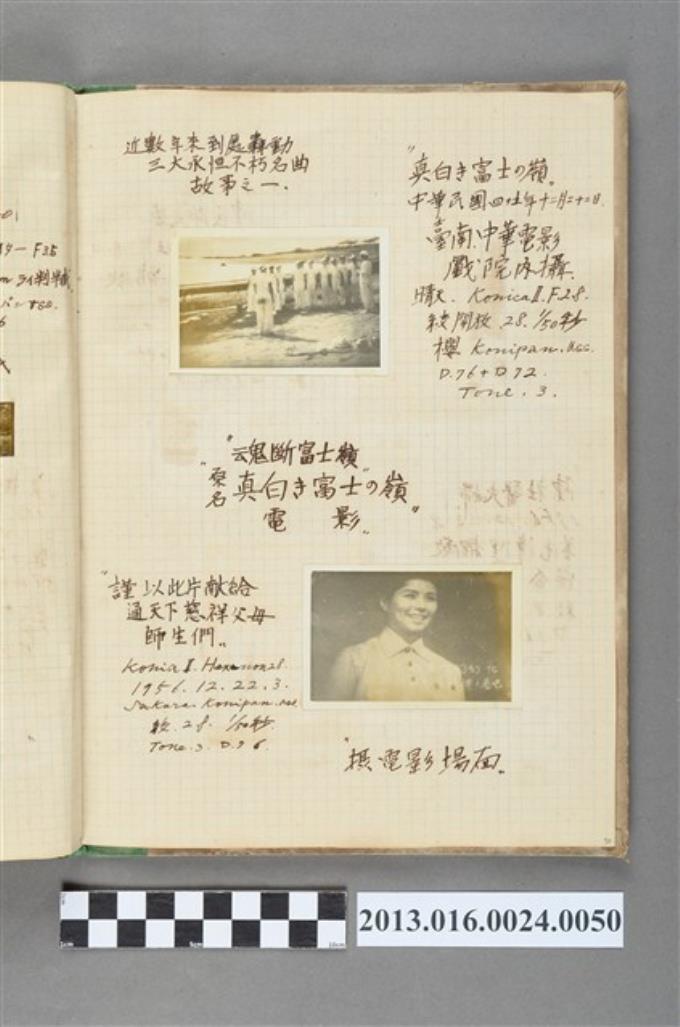 近數年來到處轟動
三大永恒不朽名曲
故事之一.
"真白き富士の嶺"
中華民國四十五年十二月二十二日.
臺南.中華電影
戲院內攝.
晴天. Konica Ⅱ. F28.
較開放. 28. 1/50秒
櫻 Konipan. sss.
D.76 + D.72.
Tone. 3.
"魂斷富士嶺"
"原名 真白き富士の嶺"
電 影"
"謹以此片献給
通天下慈祥父母
師生們"
Konica Ⅱ. Hexanon 28.
1956. 12. 22. 3.
Sakura. Konipan. sss.
較. 28. 1/50秒.
Tone. 3. D.76.
"摄電影場面"
F35
2013.016.0024.0050